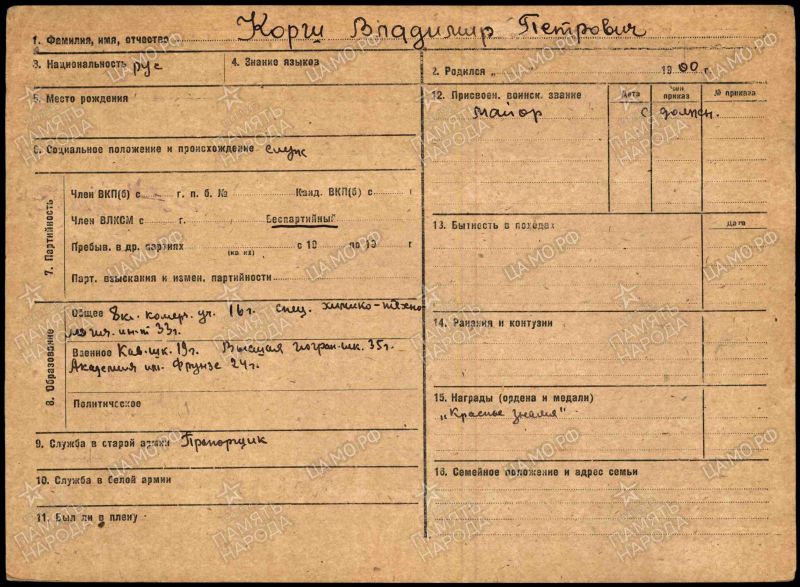 1. Фамилия, имя, отчество Корги Владимир Петрович
3. Национальность рус
4. Знание языков
2. Родился „ 1900 г.
5. Место рождения
6. Социальное положение и происхождение служ
7. Партийность
Член ВКП(б) с г. п. б. № Канд. ВКП(б) с г
Член ВЛКСМ с г. Беспартийный
Пребыв. в др. партиях с 19 по 19 г
(каких)
Парт. взыскания и измен. партийности
8. Образование
Общее 8кл. комер. уч. 16г. спец. химико-техно
логич. ин-т 33г.
Военное Кав. шк. 19г. Высшая погран. шк. 35г.
Академия им. Фрунзе 24г.
Политическое
9. Служба в старой армии Прапорщик
10. Служба в белой армии
11. Был ли в плену
12. Присвоен. воинск. звание Дата Чей приказ № приказа
майор с должн.
13. Бытность в походах Дата
14. Ранения и контузии
15. Награды (ордена и медали)
„Красное знамя"
16. Семейное положение и адрес семьи
ПАМЯТЬ НАРОДА
ЦАМО.РФ